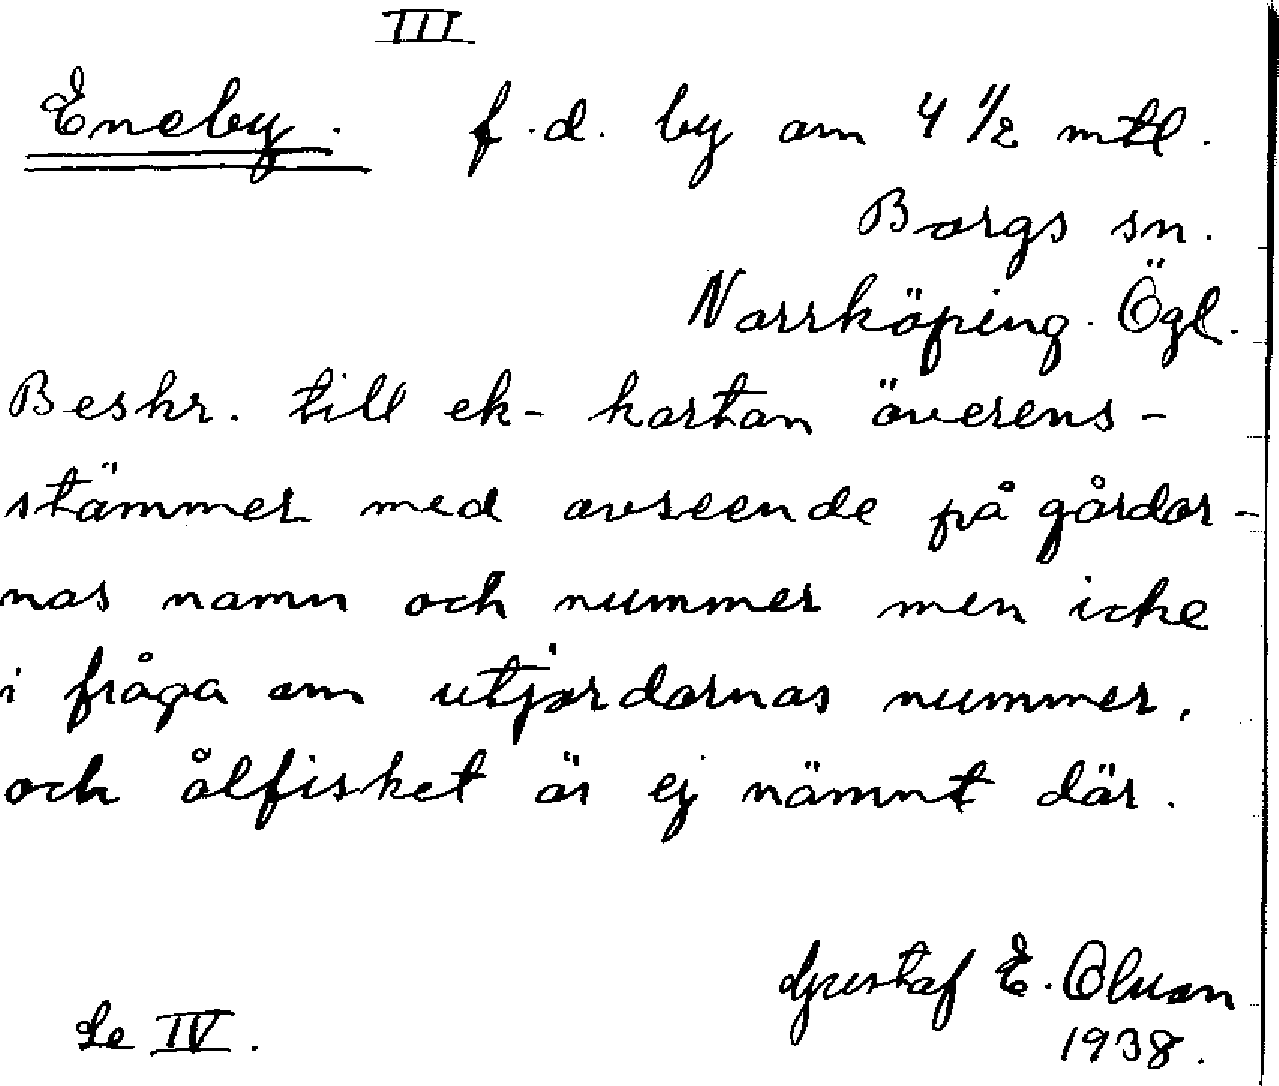 III
Eneby. f.d. by om 4 1/2 mtl.
Borgs sn.
Norrköping. Ögl.
Beskr. till ek-kartan överens-
stämmer med avseende på gårdar-
nas namn och nummer men icke
i fråga om utjordarnas nummer,
och ålfisket är ej nämnt där.
Gustaf E. Olsson
Se IV.
1938.